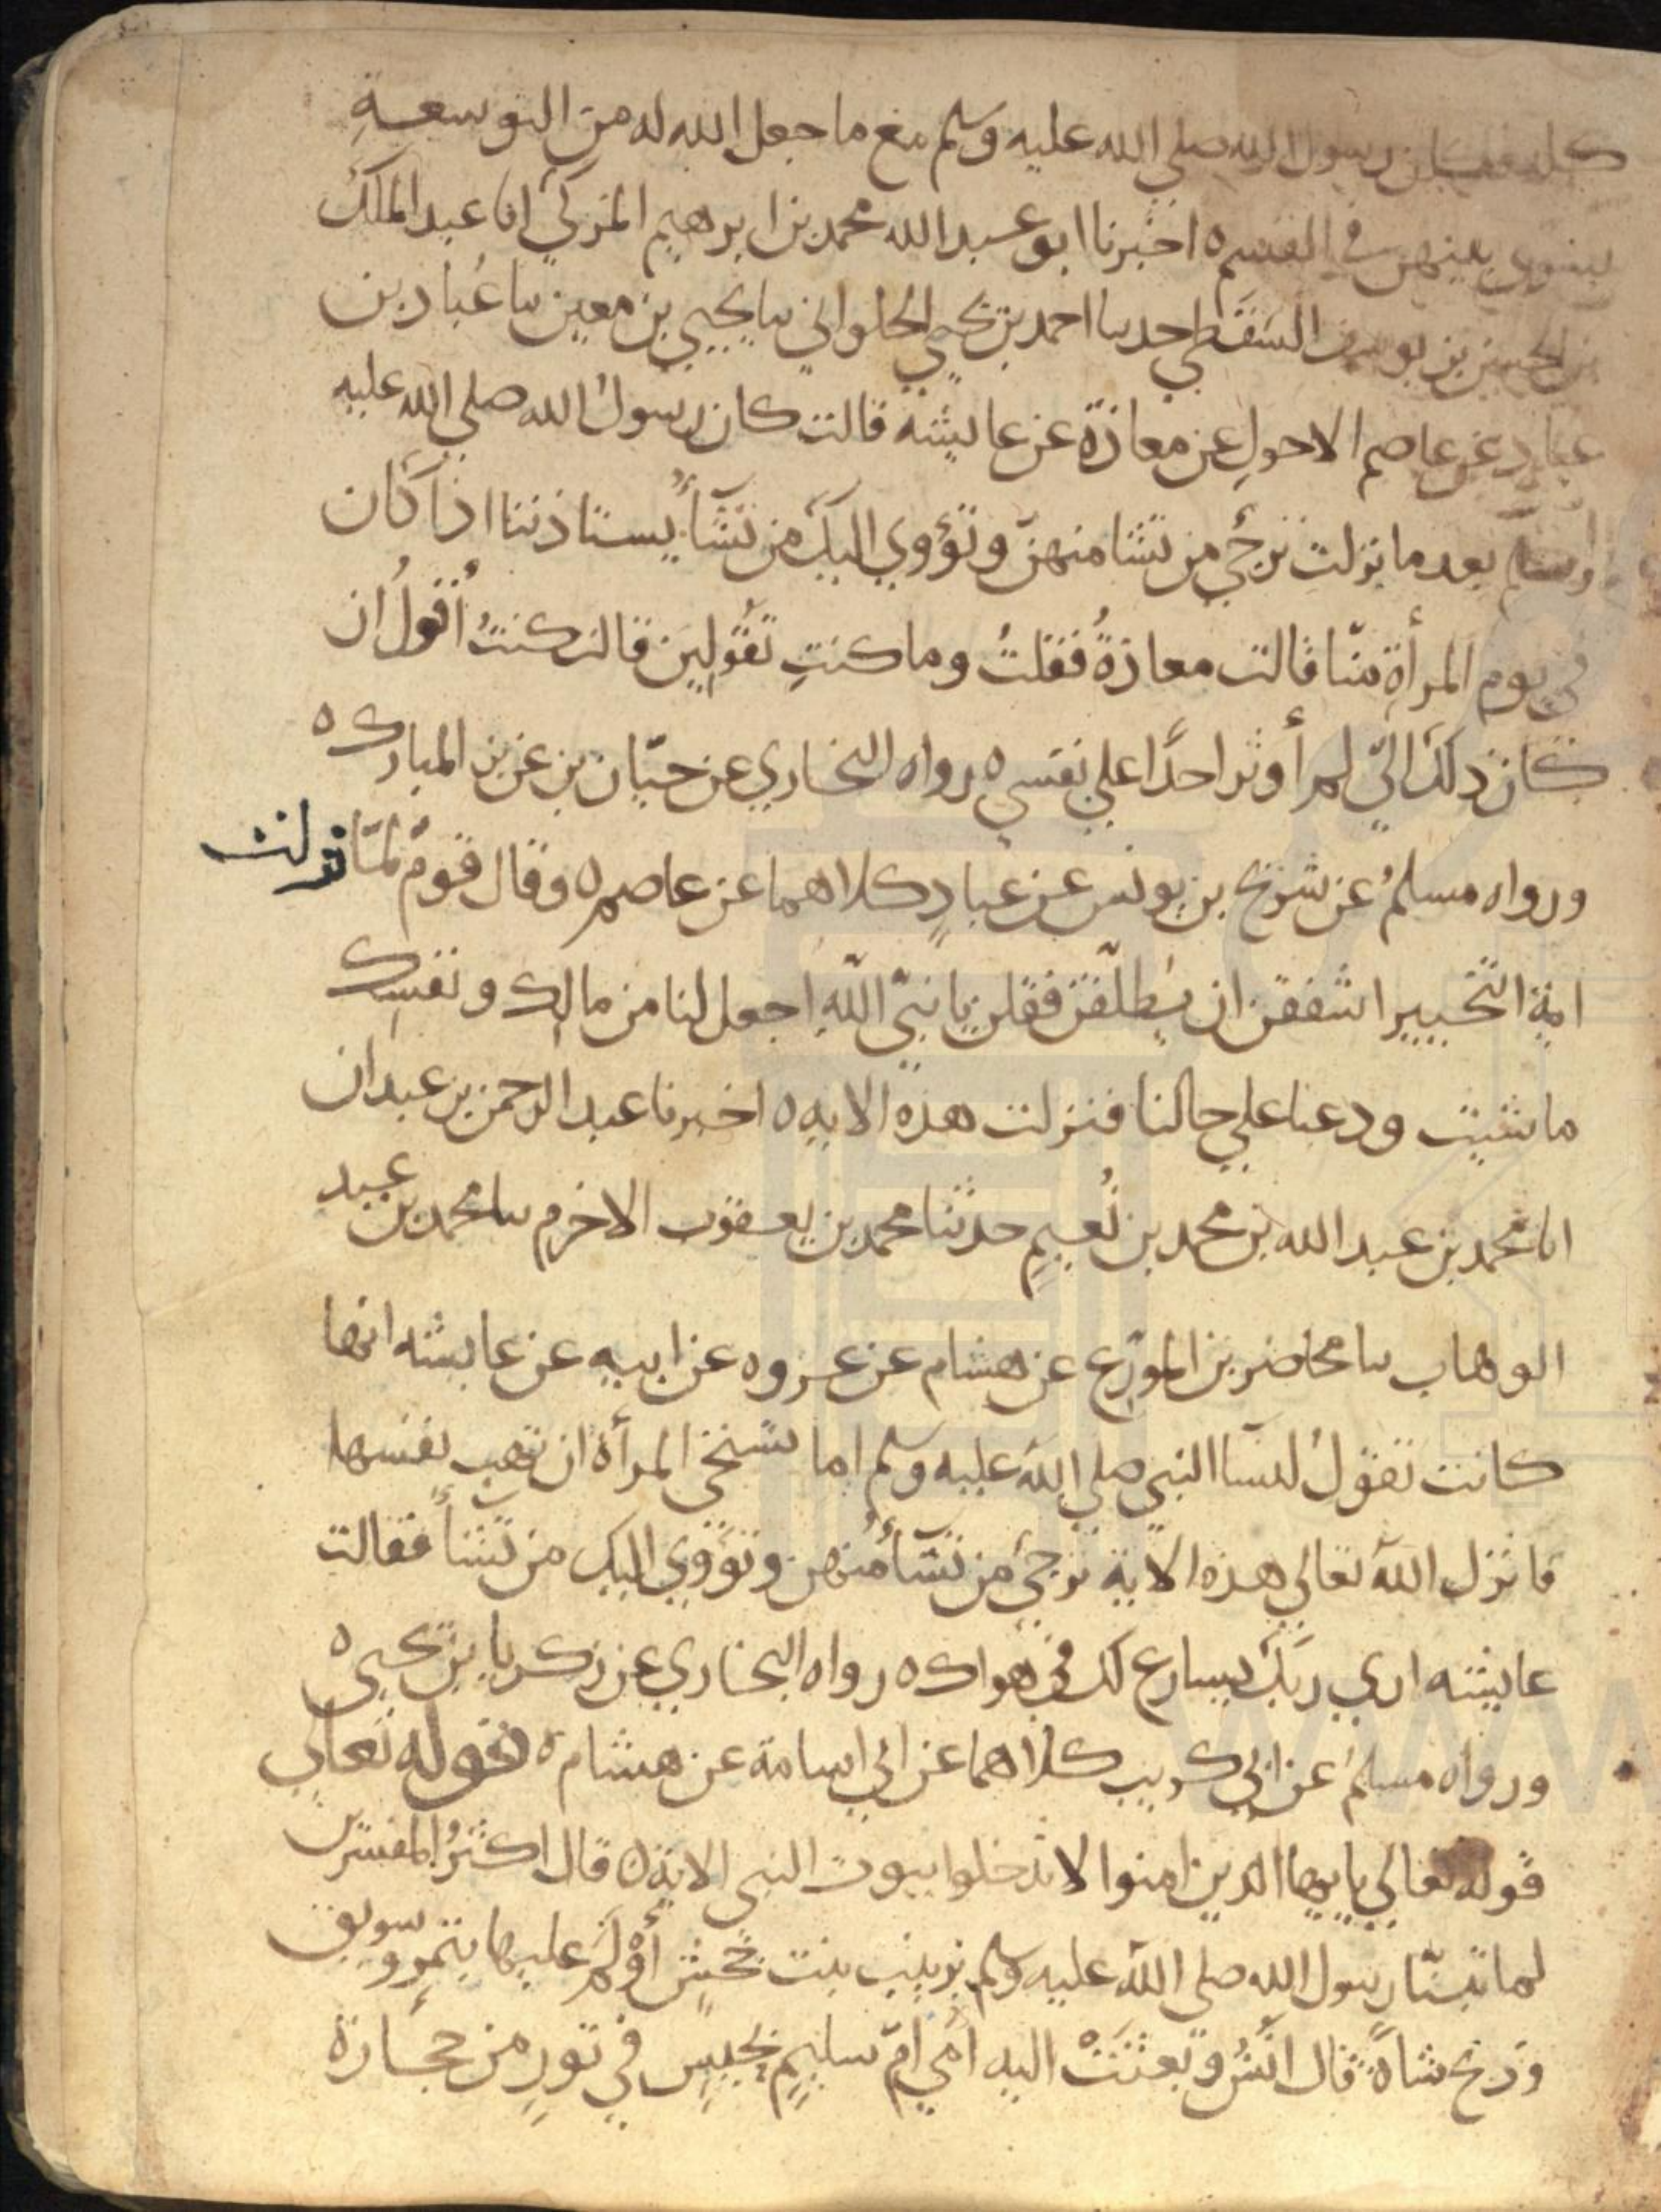 كله فكان رسول الله صلي الله عليه وسلم مع ما جعل الله له من التوسعة
يسوي بينهن في القسم ه اخبرنا ابو عبد الله محمد بن ابرهيم المزكي انا عبد الملك
بن الحسين بن يوسف السقطي حدىىا احمد بن يحيي الحلواني ىىا يحيي بن معين ىىا عباد بن
عباد عن عاصم الاحول عن معاذة عن عايشه قالت كان رسول الله صلي الله عليه
وسلم بعد ما نزلت ترجي من تشا منهن وتؤوي اليك من تشآء يستاذننا اذا كان
في يوم المرأة منا قالت معاذة فقلت وما كنت تقولين قالت كنت أقول ان
كان ذلك الي لم أوثر احدا علي نفسي ه رواه البخاري عن حبان بن عن بن المبارك ه
ورواه مسلم عن شريح بن يونس عن عباد كلاهما عن عاصم ه وقال قوم لما نزلت
اية التخيير اشفقن ان يطلقن فقلن يا نبي الله اجعل لنا من مالك ونفسك
ما شيت ودعنا علي حالنا فنزلت هذه الايه ه اخبرنا عبد الرحمن بن عبدان
انا محمد بن عبد الله بن محمد بن نعيم حدثنا محمد بن يعقوب الاخرم ىىا محمد بن عبد
الوهاب ىىا محاضر بن المورع عن هشام عن عروه عن ابيه عن عايشه انها
كانت تقول لنسا النبي صلي الله عليه وسلم اما تستحي المرأة ان تهب نفسها
فانزل الله تعالي هذه الاية ترجي من تشآء منهن وتؤوي اليك من تشآ فقالت
عايشه اري ربك يسارع لك في هواك ه رواه البخاري عن زكريا بن يحيى ه
ورواه مسلم عن ابي كريب كلاهما عن ابي اسامة عن هشام ه قوله تعالي
قوله تعالي يا ايها الذين امنوا لا تدخلوا بيوت النبي الاية ه قال اكثر المفسرين
لما بنا رسول الله صلي الله عليه وسلم بزينب بنت جحش أولم عليها بتمر وسويق
وذبح شاة قال انس وبعثت اليه امي ام سليم بحيس في تور من حجارة